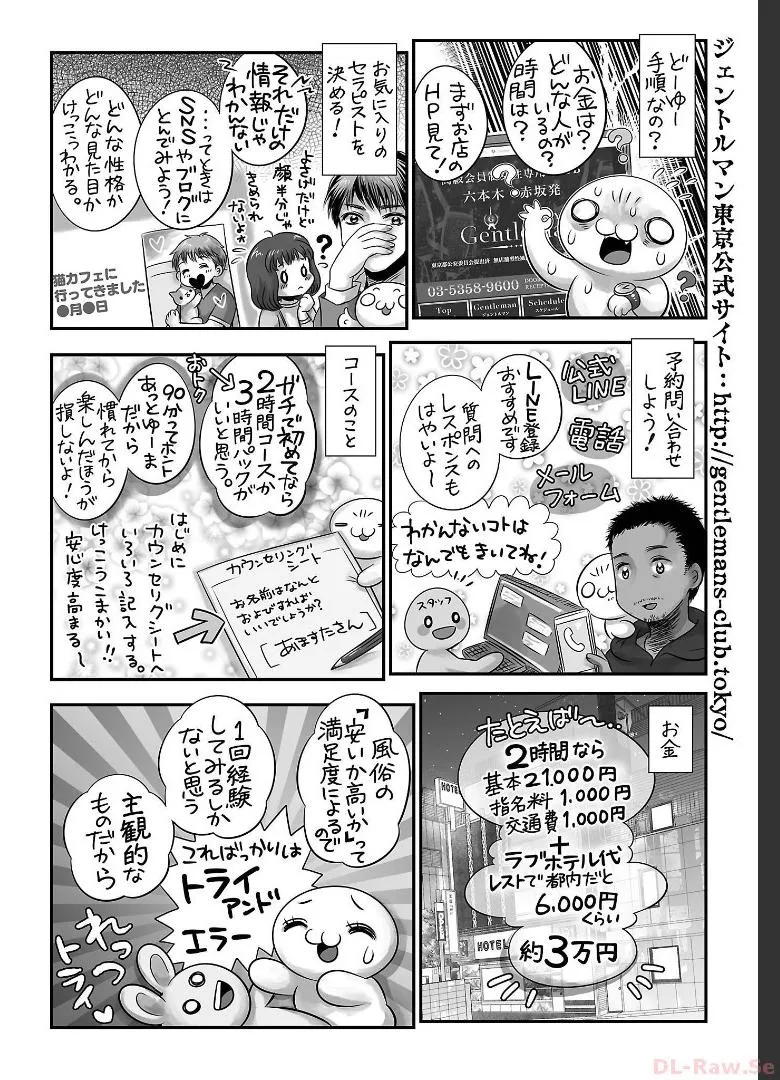 ジェントルマン東京公式サイト‥http://gentlemans-club.tokyo/
どーゆー
手順なの？
お金は？
どんな人が
いるの？
時間は？
まずお店の
HP見て！
六本木・赤坂発
Gentleman
03-5358-9600
Top
Gentleman
ジェントルマン
Schedule
スケジュール
お気に入りの
セラピストを
決める！
それだけの
情報じゃ
わかんない
よさげだけど
顔半分じゃ
きめられ
ないよォ
？
…ってときは
SNSやブログに
とんでみよう！
どんな性格か
どんな見た目か
けっこうわかる。
猫カフェに
行ってきました
●月●日
予約問い合わせ
しよう！
公式
LINE
電話
メール
フォーム
LINE登録
おすすめです
質問への
レスポンスも
はやいよ〜
わかんないコトは
なんでもきいてね！
スタッフ
コースのこと
ガチで初めてなら
2時間コースか
3時間パックが
いいと思う。
おトク
90分ってホント
あっとゆーま
だから
慣れてから
楽しんだほうが
損しないよ！
はじめに
カウンセリグシートへ
いろいろ記入する。
けっこうこまかい!!
安心度高まる〜
カウンセリングシート
お名前はなんと
およびすれば
いいでしょうか？
[あほすたさん]
お金
たとえば〜…
2時間なら
基本21,000円
指名料1,000円
交通費1,000円
＋
ラブホテル代
レストで都内だと
6,000円
くらい
約3万円
HOTEL
HOTEL
風俗の
「安いか高いか」って
満足度によるので
1回経験
してみるしか
ないと思う
主観的な
ものだから
こればっかりは
トライ
アンド
エラー
れっつ
トライ♥
DL-Raw.Se